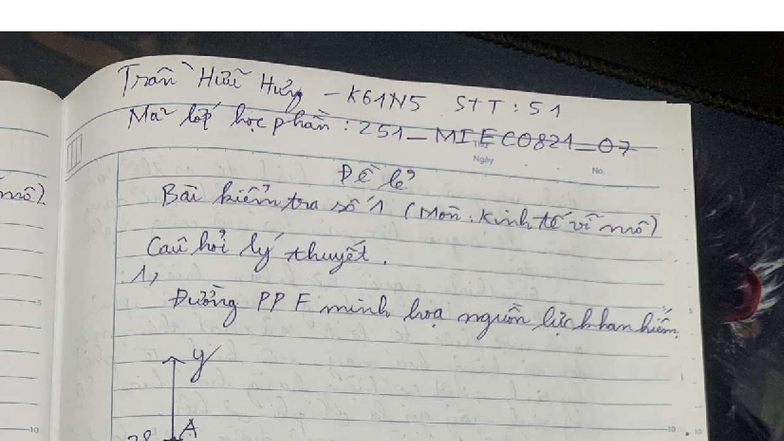 Trần Hữu Hưng - K61N5 STT: 51
Mã lớp học phần: 251_MIECO821_07
Ngày
No.
Đề lẻ
Bài kiểm tra số 1 (Môn: Kinh tế vĩ mô)
mô)
Câu hỏi lý thuyết.
1,
Đường PPF minh hoạ nguồn lực khan hiếm.
y
A